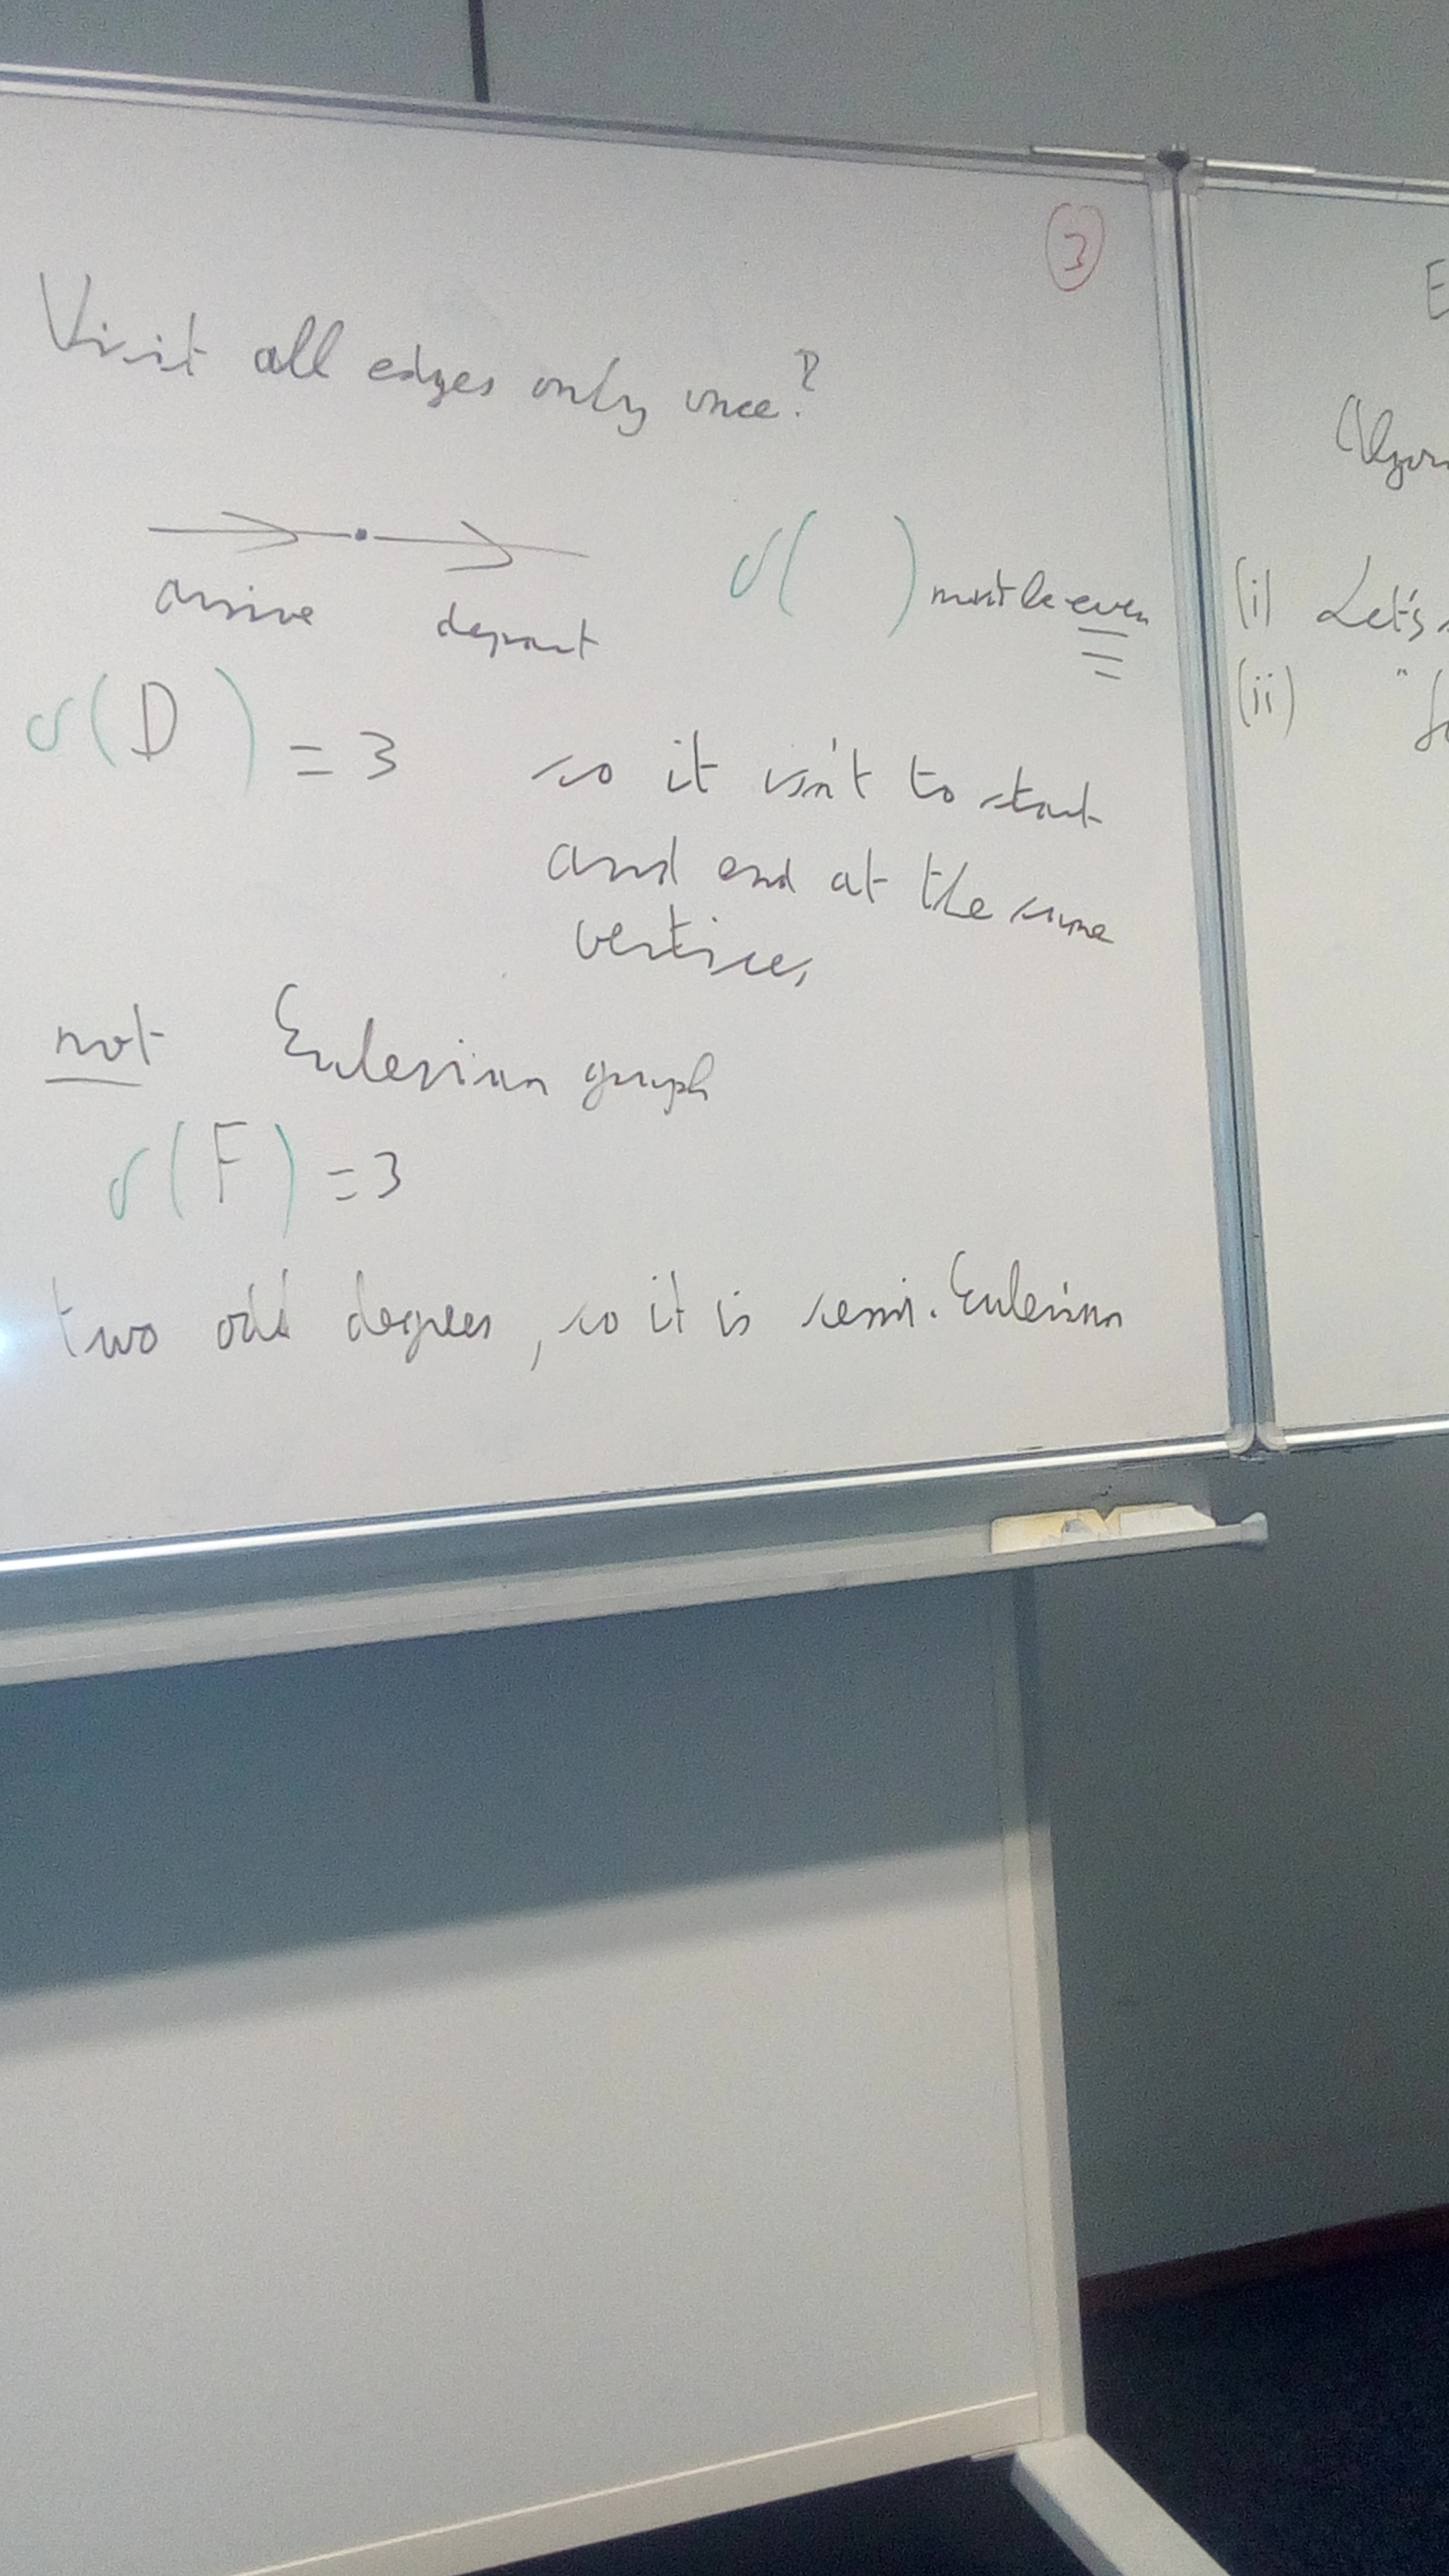 ③
Visit all edges only once?
arrive depart
δ( ) must be even
δ(D) = 3 so it isn't to start
and end at the same
vertices
not Eulerian graph
δ(F) = 3
two odd degrees, so it is semi-Eulerian
E
(i) Let's
(ii) "